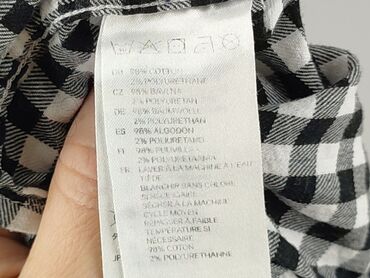 98% COTTON
2% POLYURETHANE
CZ 98% BAVLNA
2% POLYURETAN
DE 98% BAUMWOLLE
2% POLYURETHAN
ES 98% ALGODÓN
2% POLIURETANO
FI 98% PUUVILLAA
2% POLYURETAANIA
FR LAVER À LA MACHINE À L'EAU
TIÈDE
BLANCHIR SANS CHLORE,
SI NÉCESSAIRE
SÉCHER À LA MACHINE
CYCLE MOYEN
REPASSER À FAIBLE
TEMPÉRATURE SI
NÉCESSAIRE
98% COTON
2% POLYURÉTHANNE